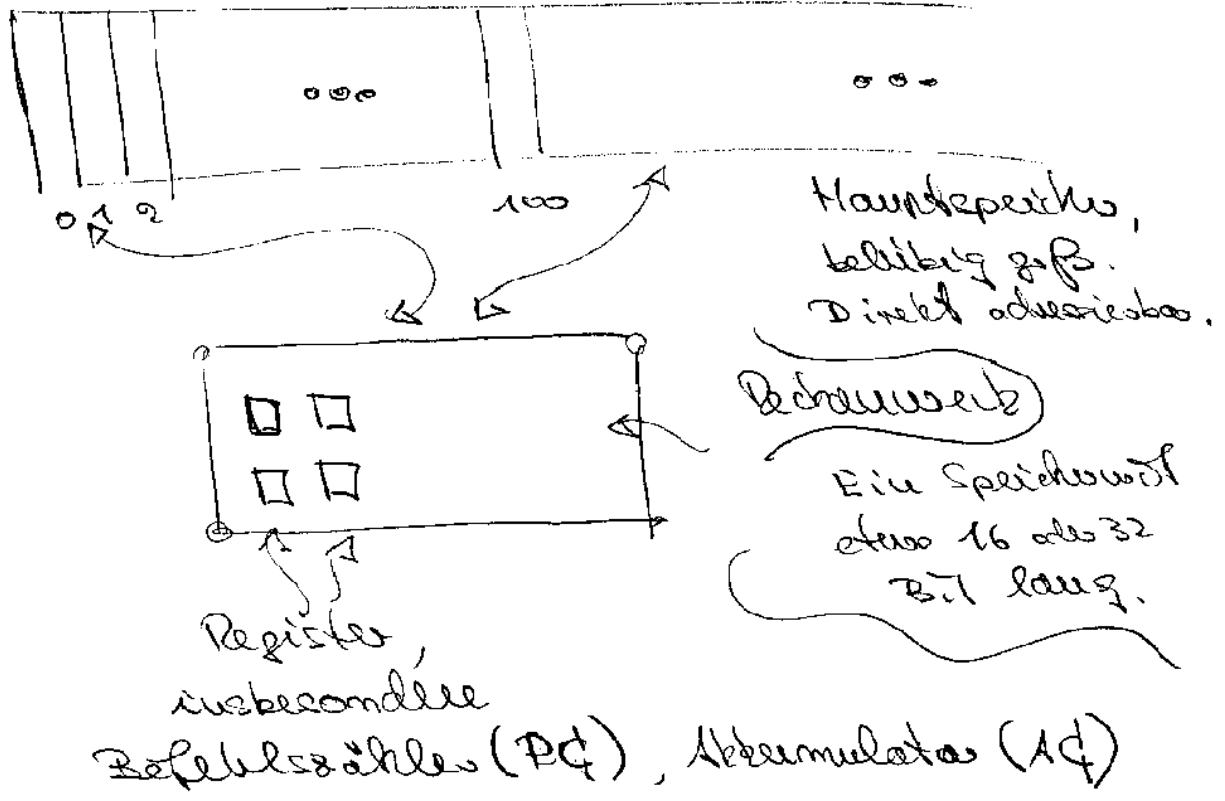 0 1 2
100
Hauptspeicher,
beliebig groß.
Direkt adressierbar.
Rechenwerk
Ein Speicherwort
etwa 16 oder 32
Bit lang.
Register,
insbesondere
Befehlszähler (PC), Akkumulator (AC)